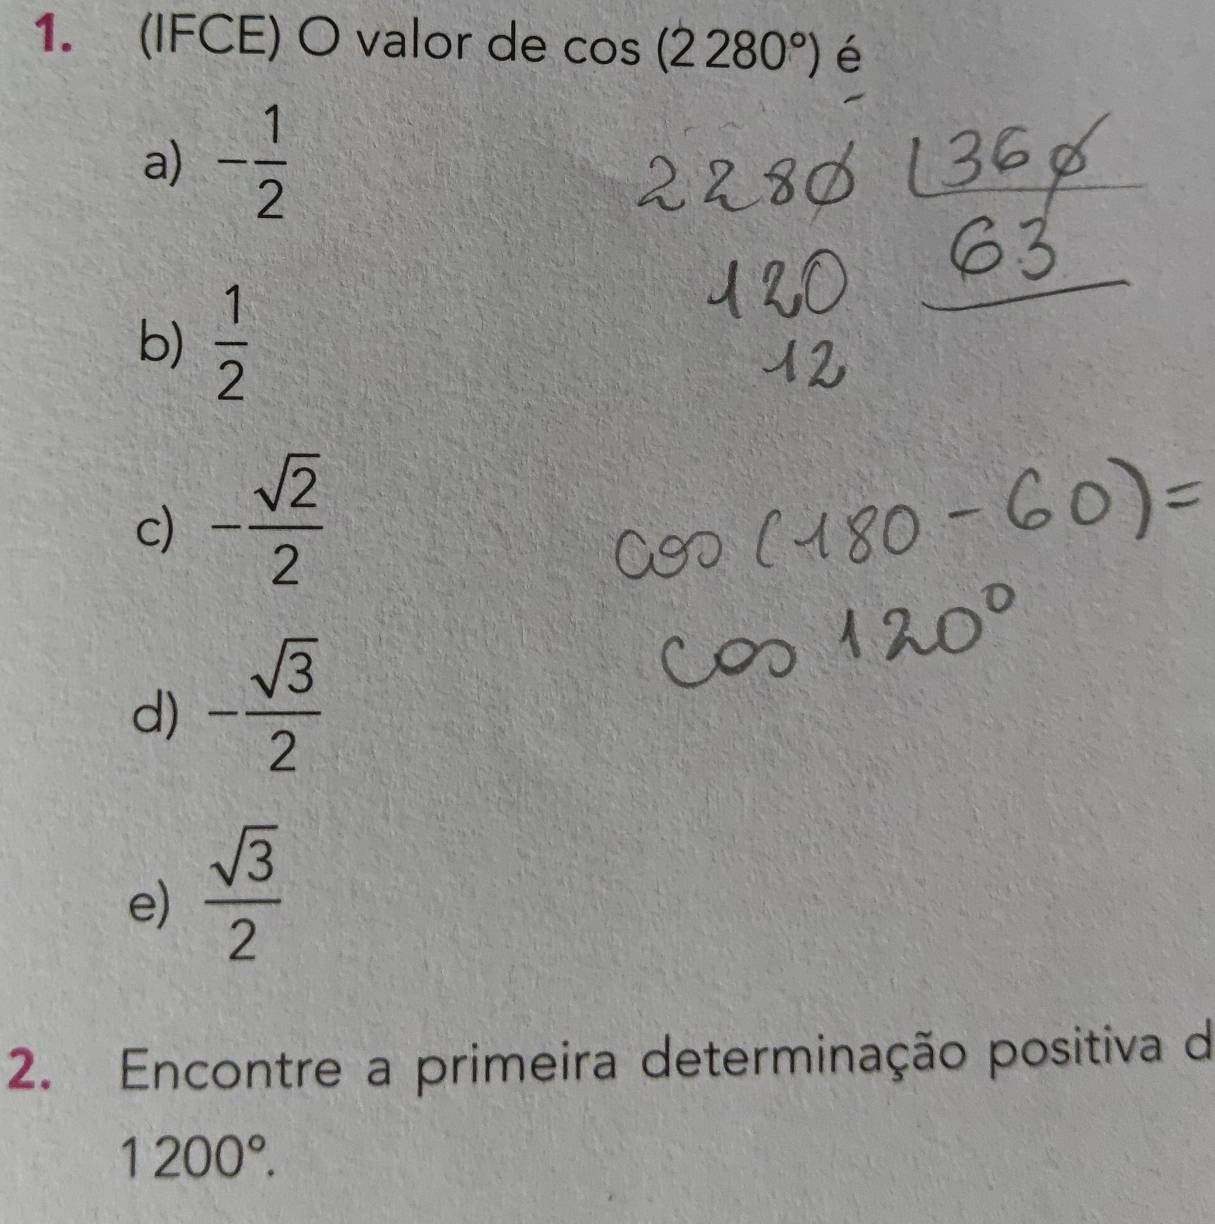 1. (IFCE) O valor de cos (2 280°) é
a) -1/2
2280 | 360
63
120
12
b) 1/2
c) -√2/2
cos (180 - 60) =
cos 120°
d) -√3/2
e) √3/2
2. Encontre a primeira determinação positiva d
1 200°.